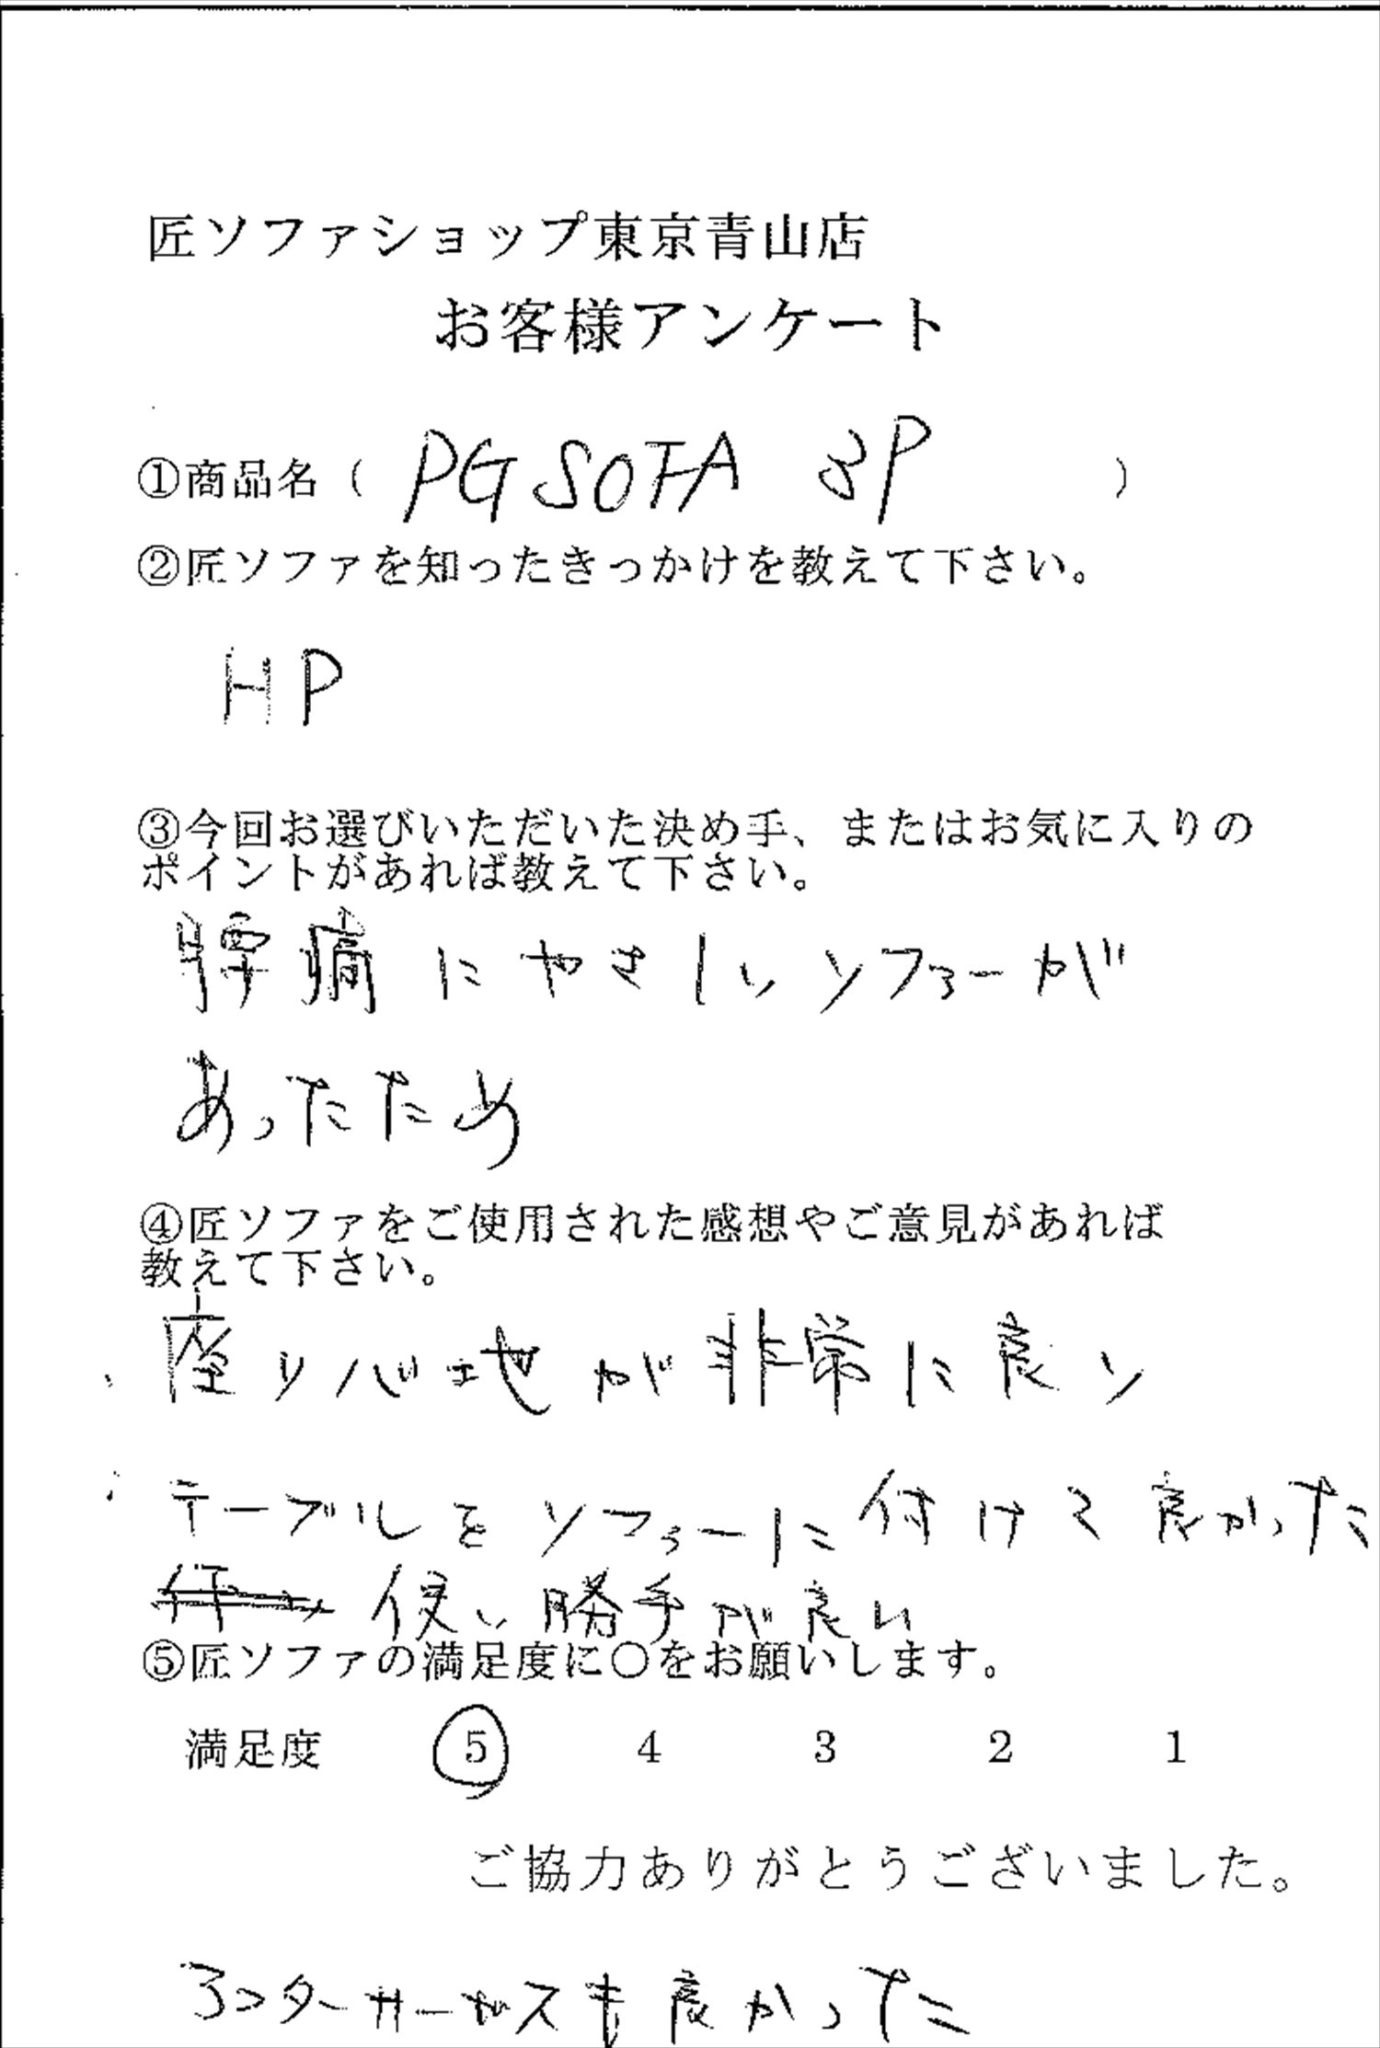 匠ソファショップ東京青山店
お客様アンケート
①商品名（ PG SOFA 3P ）
②匠ソファを知ったきっかけを教えて下さい。
HP
③今回お選びいただいた決め手、またはお気に入りの
ポイントがあれば教えて下さい。
腰痛にやさしいソファーが
あったため
④匠ソファをご使用された感想やご意見があれば
教えて下さい。
・座り心地が非常に良い
・テーブルをソファーに付けて良かった
使い勝手が良い
⑤匠ソファの満足度に〇をお願いします。
満足度 5 4 3 2 1
ご協力ありがとうございました。
アフターサービスも良かった